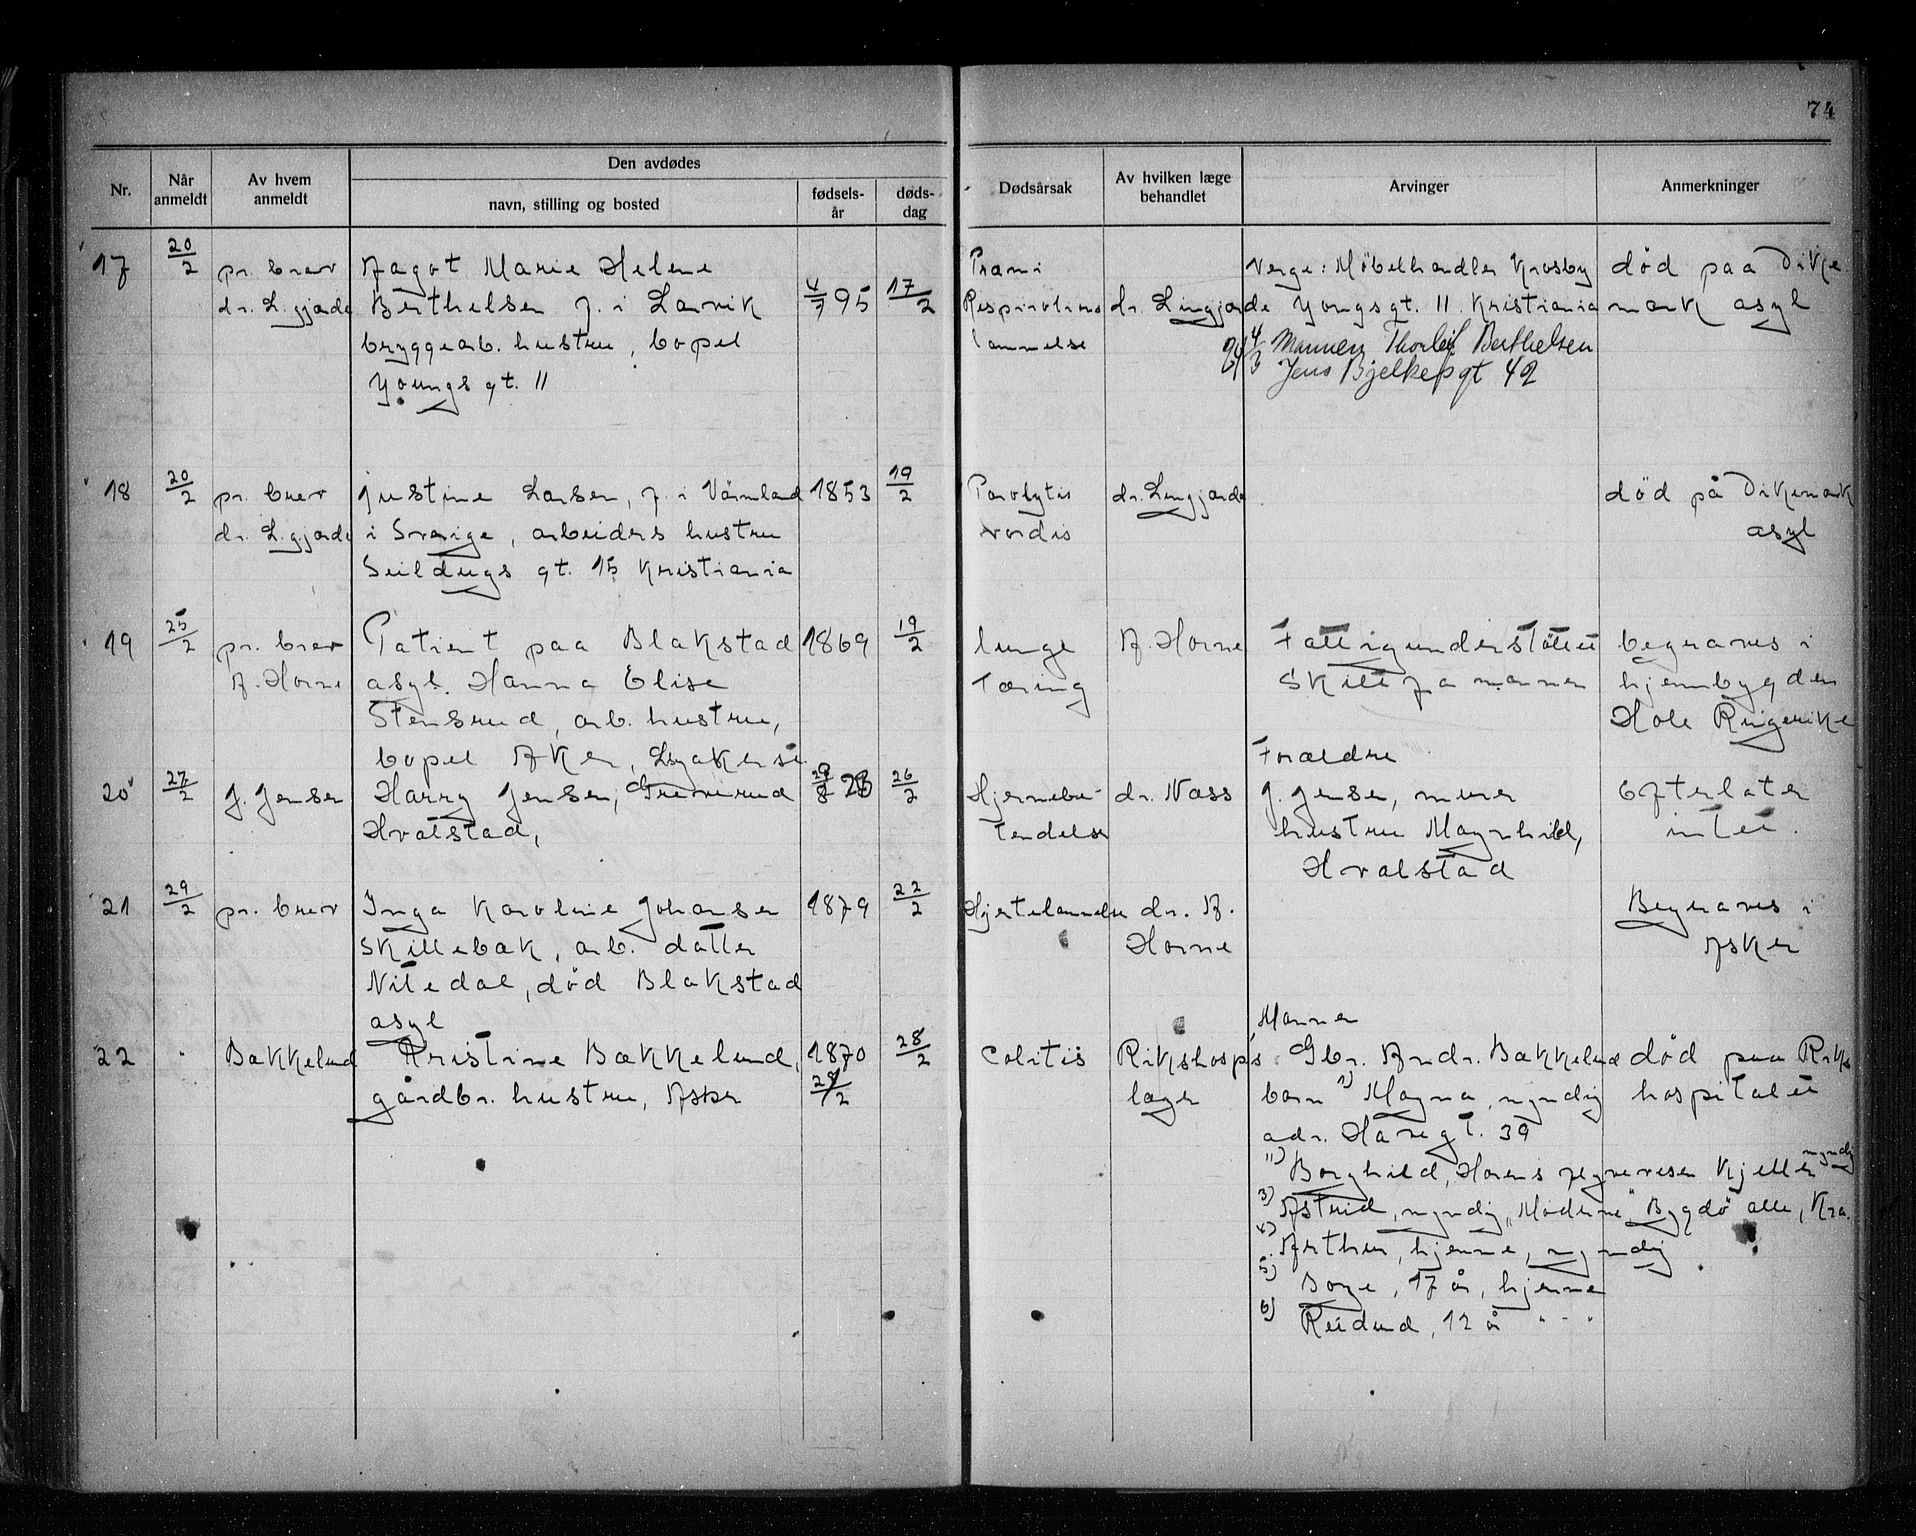 74
Nr.
Når anmeldt
Av hvem anmeldt
Den avdødes
navn, stilling og bosted
fødsels-år
døds-dag
Dødsårsak
Av hvilken læge behandlet
Arvinger
Anmerkninger
17
20/2
pr. brev
dr. L.gjærde
Aagot Marie Helene
Berthelsen f. i Larvik
bryggearb. hustru, bopel
Youngs gt. 11
4/7 95
17/2
Respirations
lammelse
dr. Lingjærde
Verge: Møbelhandler Krosby
Youngsgt. 11. Kristiania
4/3 Mannen Thorleif Berthelsen
Jens Bjelkesgt 42
død paa Dike
mark asyl
18
20/2
pr. brev
dr. L.gjærde
Justine Larsen, f. i Värmland
i Sverige, arbeiders hustru
Seildugs gt. 15 Kristiania
1853
19/2
dr. Lingjærde
død på Dikemark
asyl
19
25/2
pr. brev
A. Horne
Patient paa Blakstad
asyl. Hanna Elise
Stensrud, arb. hustru,
bopel Aker, Lysakersi
1869
19/2
lunge
tæring
A. Horne
Fattigunderstøttet
Skilt fra mannen
begraves i
hjembygden
Hole Ringerike
20
27/2
J. Jensen
Harry Jensen,
Hvalstad,
26/2
Hjernebe-
tendelse
dr. Næss
Forældre
J. Jensen, murer
hustru Magnhild,
Hvalstad
Efterlater
intet.
21
29/2
pr. brev
Inga Karoline Johansen
Skillebæk, arb. datter
Nitedal, død Blakstad
asyl
1879
22/2
Hjertelammelse
dr. A.
Horne
Begraves i
Asker
22
Bakkelund
Kristine Bakkelund,
gårdbr. hustru, Asker
1870
28/2
28/2
Colitis
Rikshosp's
læger
Mannen
Gbr. Andr. Bakkelund
barn 1) Magna, myndig
adr. Haregt. 39
") Borghild, Hærens flyvevesen Kjeller myndig
3) Astrid, myndig, "Moderne" Bygdø alle, Kra.
4) Arthur, hjemme, myndig
5) Borge, 17 år, hjemme
6) Reidund, 12 år " - "
død paa Riks
hospitalet